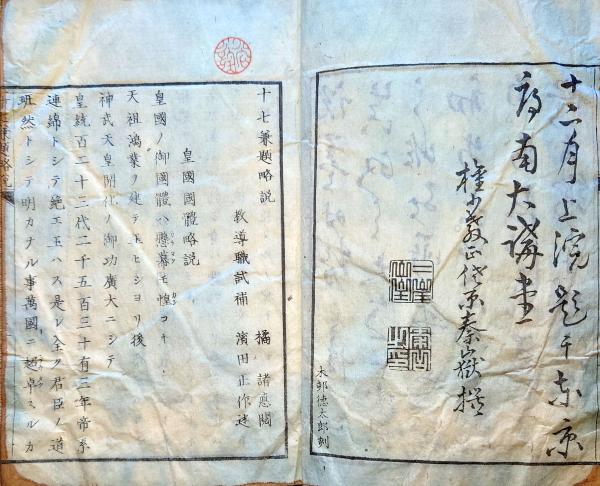 十二月上浣題于東京
府南大講堂
権少教正代京泰嶽撰
木邨徳太郎刻
十七兼題略説
教導職試補
橘諸應閲
濱田正作述
皇國國體略説
皇國ノ御國體ハ懸幕モ惶コキ
天祖鴻業ヲ建テ玉ヒシヨリ後
神武天皇開化ノ御功廣大ニシテ
皇統百二十二代二千五百三十有三年帝系
連綿トシテ絶エ玉ハス是レ全ク君臣ノ道
班然トシテ明カナル事萬國ニ超卓スルカ